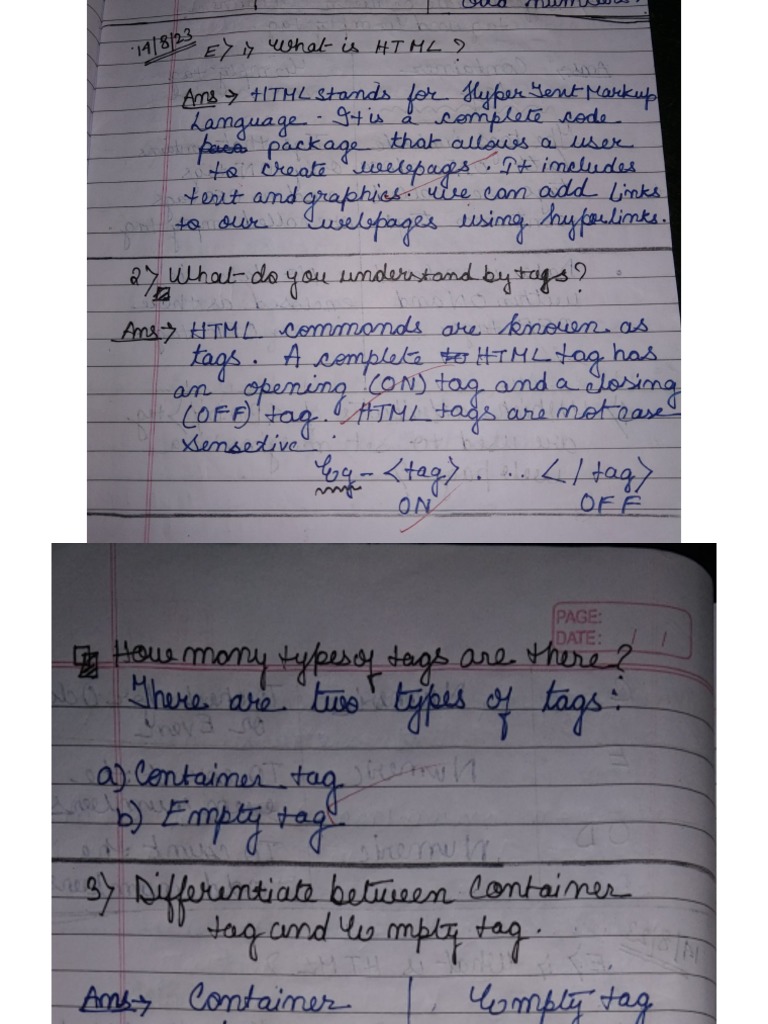 14/8/23 E> 1> What is HTML?
Ans → HTML stands for Hyper Text Markup
Language. It is a complete code
package that allows a user
to create webpages. It includes
text and graphics. We can add links
to our webpages using hyperlinks.
2> What do you understand by tags?
Ans → HTML commands are known as
tags. A complete to HTML tag has
an opening (ON) tag and a closing
(OFF) tag. HTML tags are not case
sensetive
Eg - <tag> . . . </tag>
ON OFF
PAGE:
DATE: / /
How many types of tags are there?
There are two types of tags:
a) Container tag
b) Empty tag
3> Differentiate between Container
tag and Empty tag.
Ans → Container | Empty tag